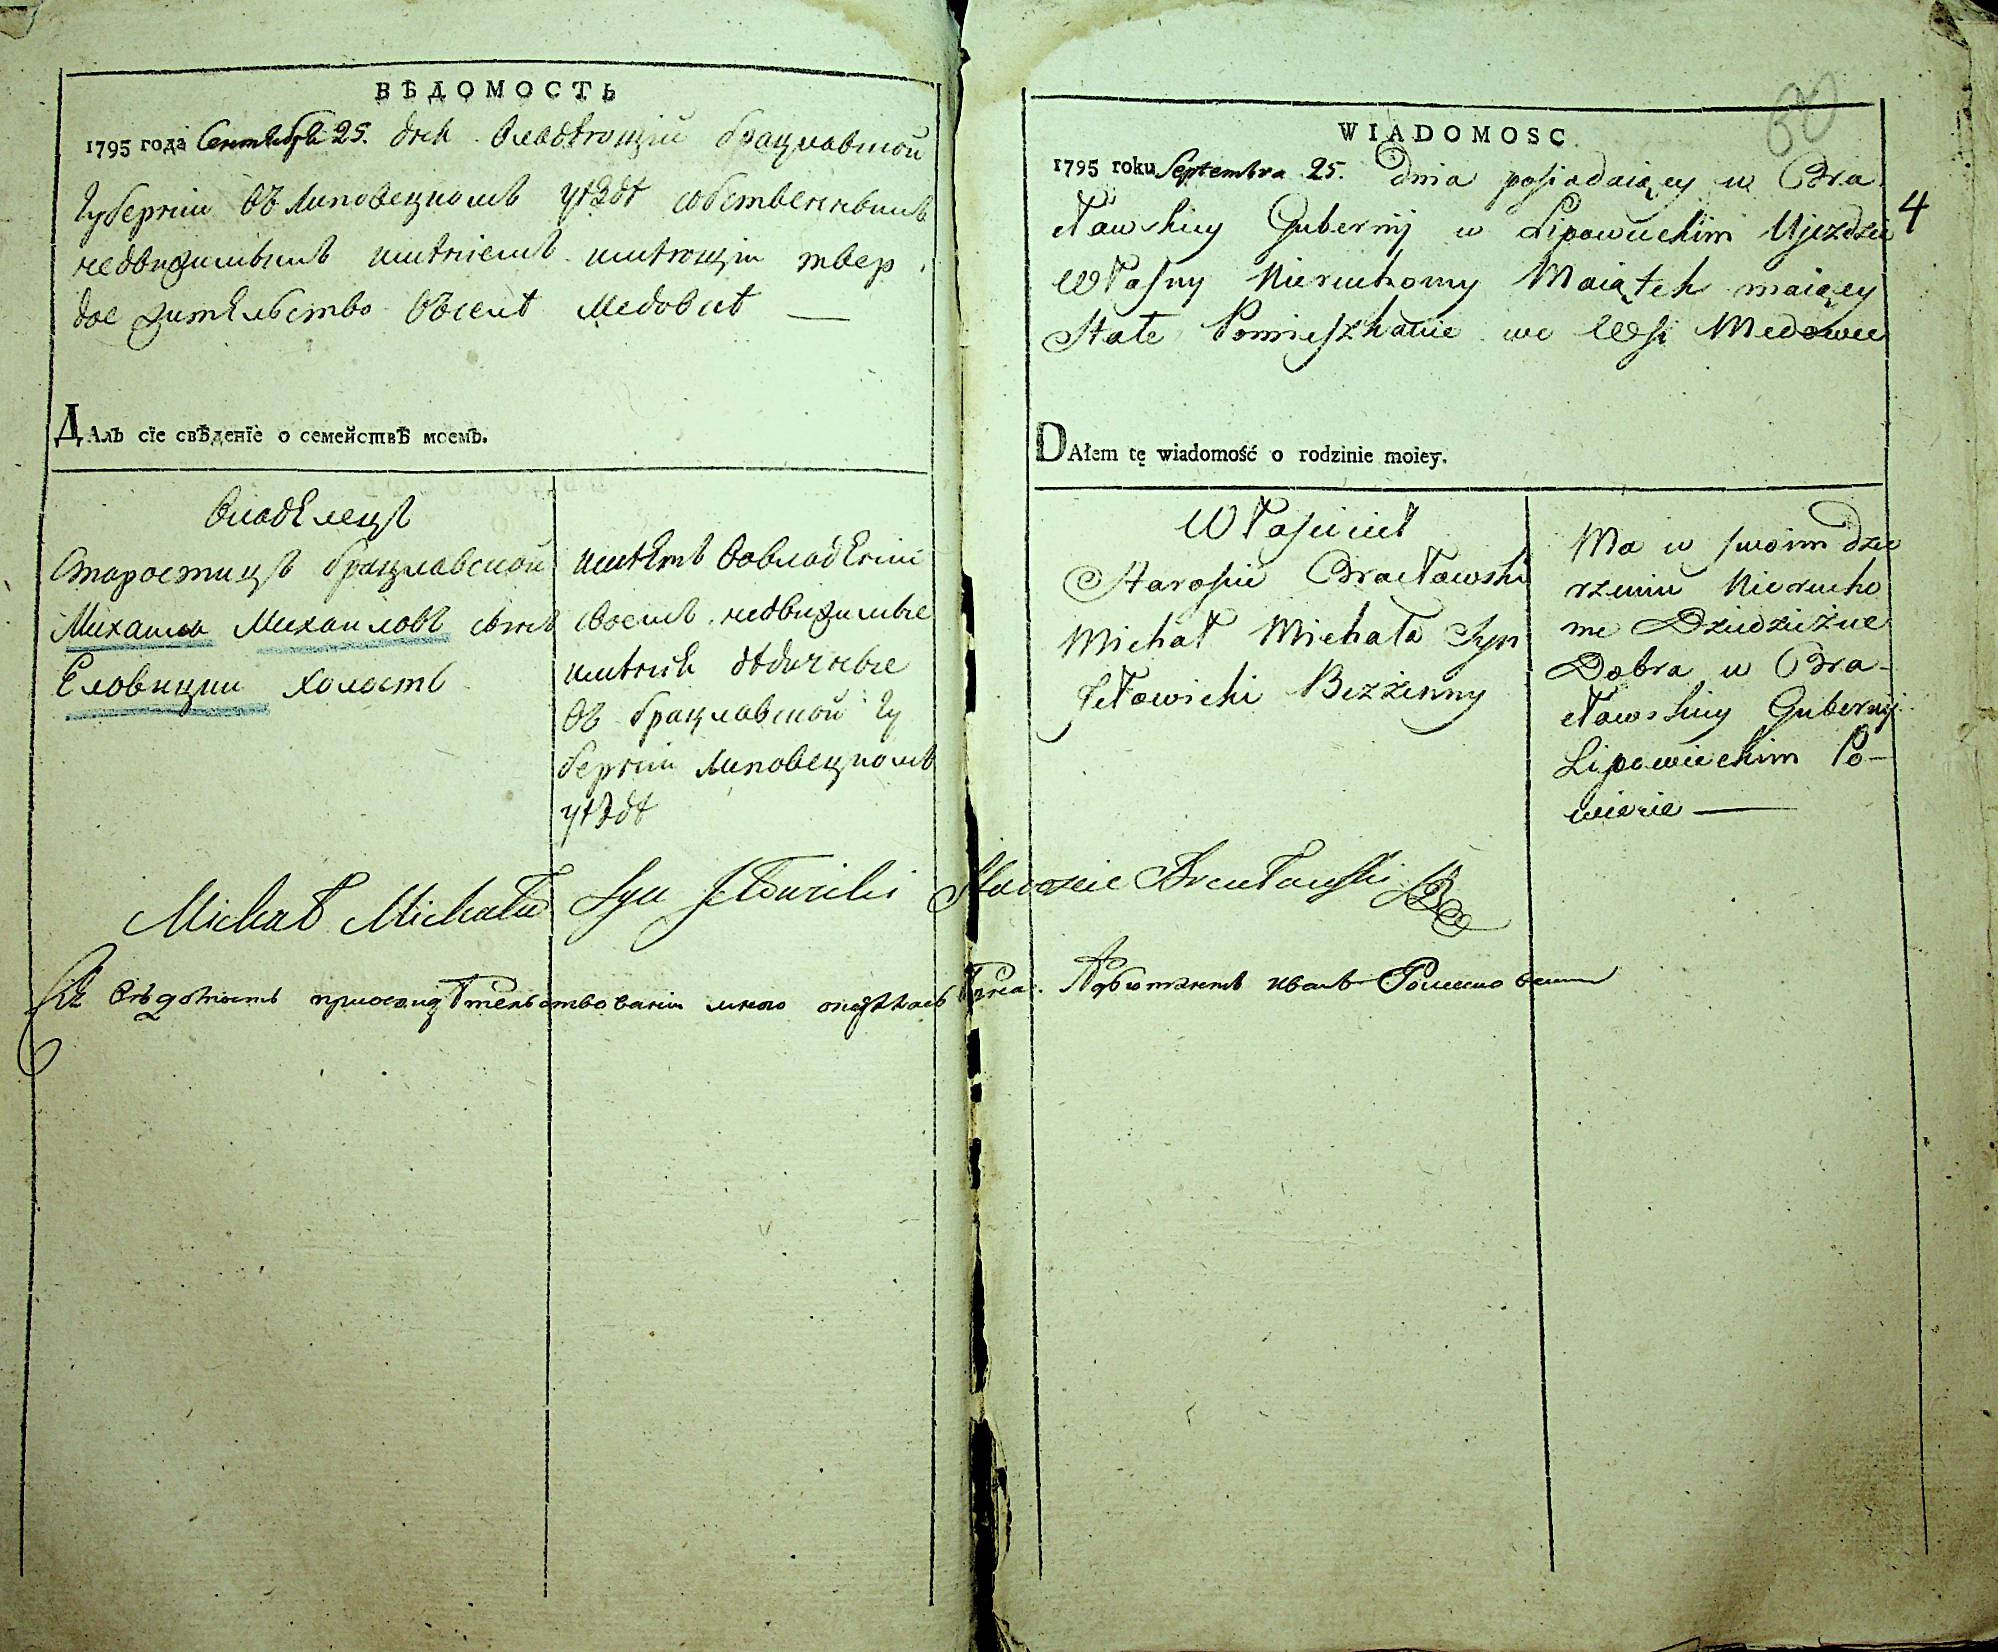 ВѢДОМОСТЬ
1795 года Сентября 25. дня владѣющій брацлавской
губерніи въ липовецкомъ уѣздѣ собственнымъ
недвижимымъ имѣніемъ имѣющіи твер
дое жителство въ селѣ Медовкѣ —
ДАлъ сїе свѣденїе о семействѣ моемъ.
владѣлецъ
Старостицъ брацлавской
Михаилъ Михаиловъ сынъ
Еловицкии холостъ
имѣетъ вовладѣніи
своемъ недвижимые
имѣнія дѣдичные
въ брацлавской гу
берніи липовецкомъ
уѣздѣ
WIADOMOSC
60
1795 roku Septembra 25. Dnia posiadaiący w Bra
cławskiey Gubernij w Lipowieckim Ujezdzie
4
Własny Nieruchomy Maiątek maiący
Stałe Pomieszkanie we Wsi Medowce
DAłem tę wiadomość o rodzinie moiey.
Właściciel
Starościc Bracławski
Michał Michała Syn
Jełowicki Bezżenny
Ma w swoim dzie
rzeniu Nierucho
me Dziedziczne
Dobra w Bra-
cławskiey Gubernij
Lipowieckim Po-
wiecie —
Michał Michała Syn Jełowicki Starościc Bracławski
Сія вѣдомость приосвидѣтельствовании мною Адъютантъ иванъ